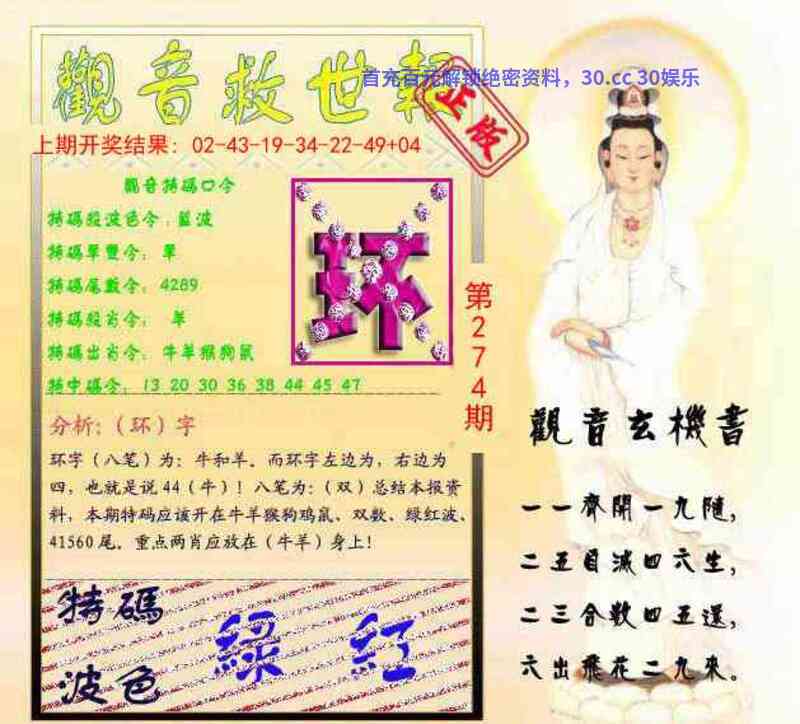 觀音救世報
首充百元解锁绝密资料，30.cc 30娱乐
正传
上期开奖结果：02-43-19-34-22-49+04
觀音特碼口令
特碼殺波色令：藍波
特碼單雙令：單
特碼尾數令：4289
特碼殺肖令：羊
特碼出肖令：牛羊猴狗鼠
特中碼令：13 20 30 36 38 44 45 47
环
第274期
分析：（环）字
环字（八笔）为：牛和羊。而环字左边为，右边为
四，也就是说44（牛）！八笔为：（双）总结本报资
料，本期特码应该开在牛羊猴狗鸡鼠、双数、绿红波、
41560尾。重点两肖应放在（牛羊）身上！
特碼
波色
綠 紅
觀音玄機書
一一齊開一九隨，
二五目減四六生，
二三合數四五送，
六出飛花二九來。